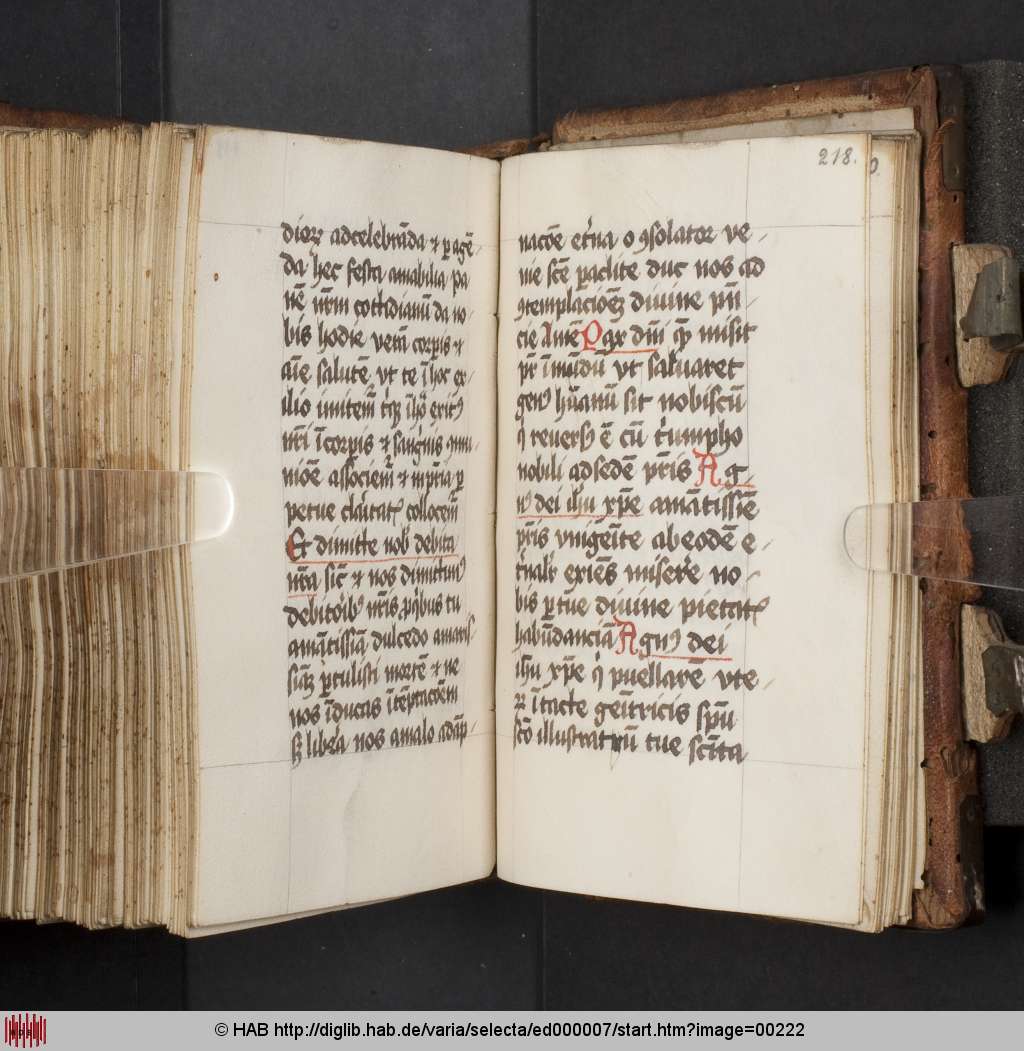 dioꝝ adcelebrāda ⁊ ꝑagē
da hec festa amabilia pa
nē nr̄m cottidianū da no
bis hodie verā corpis ⁊
aīe salutē vt te ī hoc ex
ilio imitem̄
nr̄i ī corpis ⁊ sangnis
nioē associem̄ ⁊ ꝑ
petue claritatꝭ collocem̄
Et dimitte nob̄ debita
nr̄a sic̄ ⁊ nos dimittimꝰ
debitoribꝰ nr̄is ꝓ qibus tu
amātissīa dulcedo amaris
sīaꝫ ꝑtulisti mortē ⁊ ne
nos īducas ī tēptacoēm
sꝫ libera nos amalo adāp
218.
nacōe et'na o ꝯsolator ve
nie scē paclite duc nos ad
ꝯtemplacioēꝫ divine p̄n
cie Amē Pax dn̄i q̄ꝫ misit
pr̄ ī mūdū vt salvaret
genꝰ hūanū sit nobiscū
qͥ reversꝰ ē cū triumpho
nobili adsedē pr̄is Ag
nꝰ dei ihu xp̄e amātissīe
pr̄is vnigeīte abeodē e
t'nalit exiēs miserere no
bis ꝑ tue divine pietatꝭ
habūdanciā Agnꝰ dei
ihu xp̄e qͥ puellarē vte
ꝝ ītacte geītricis sp̄u
scō illustrat tue scīta
© HAB http://diglib.hab.de/varia/selecta/ed000007/start.htm?image=00222